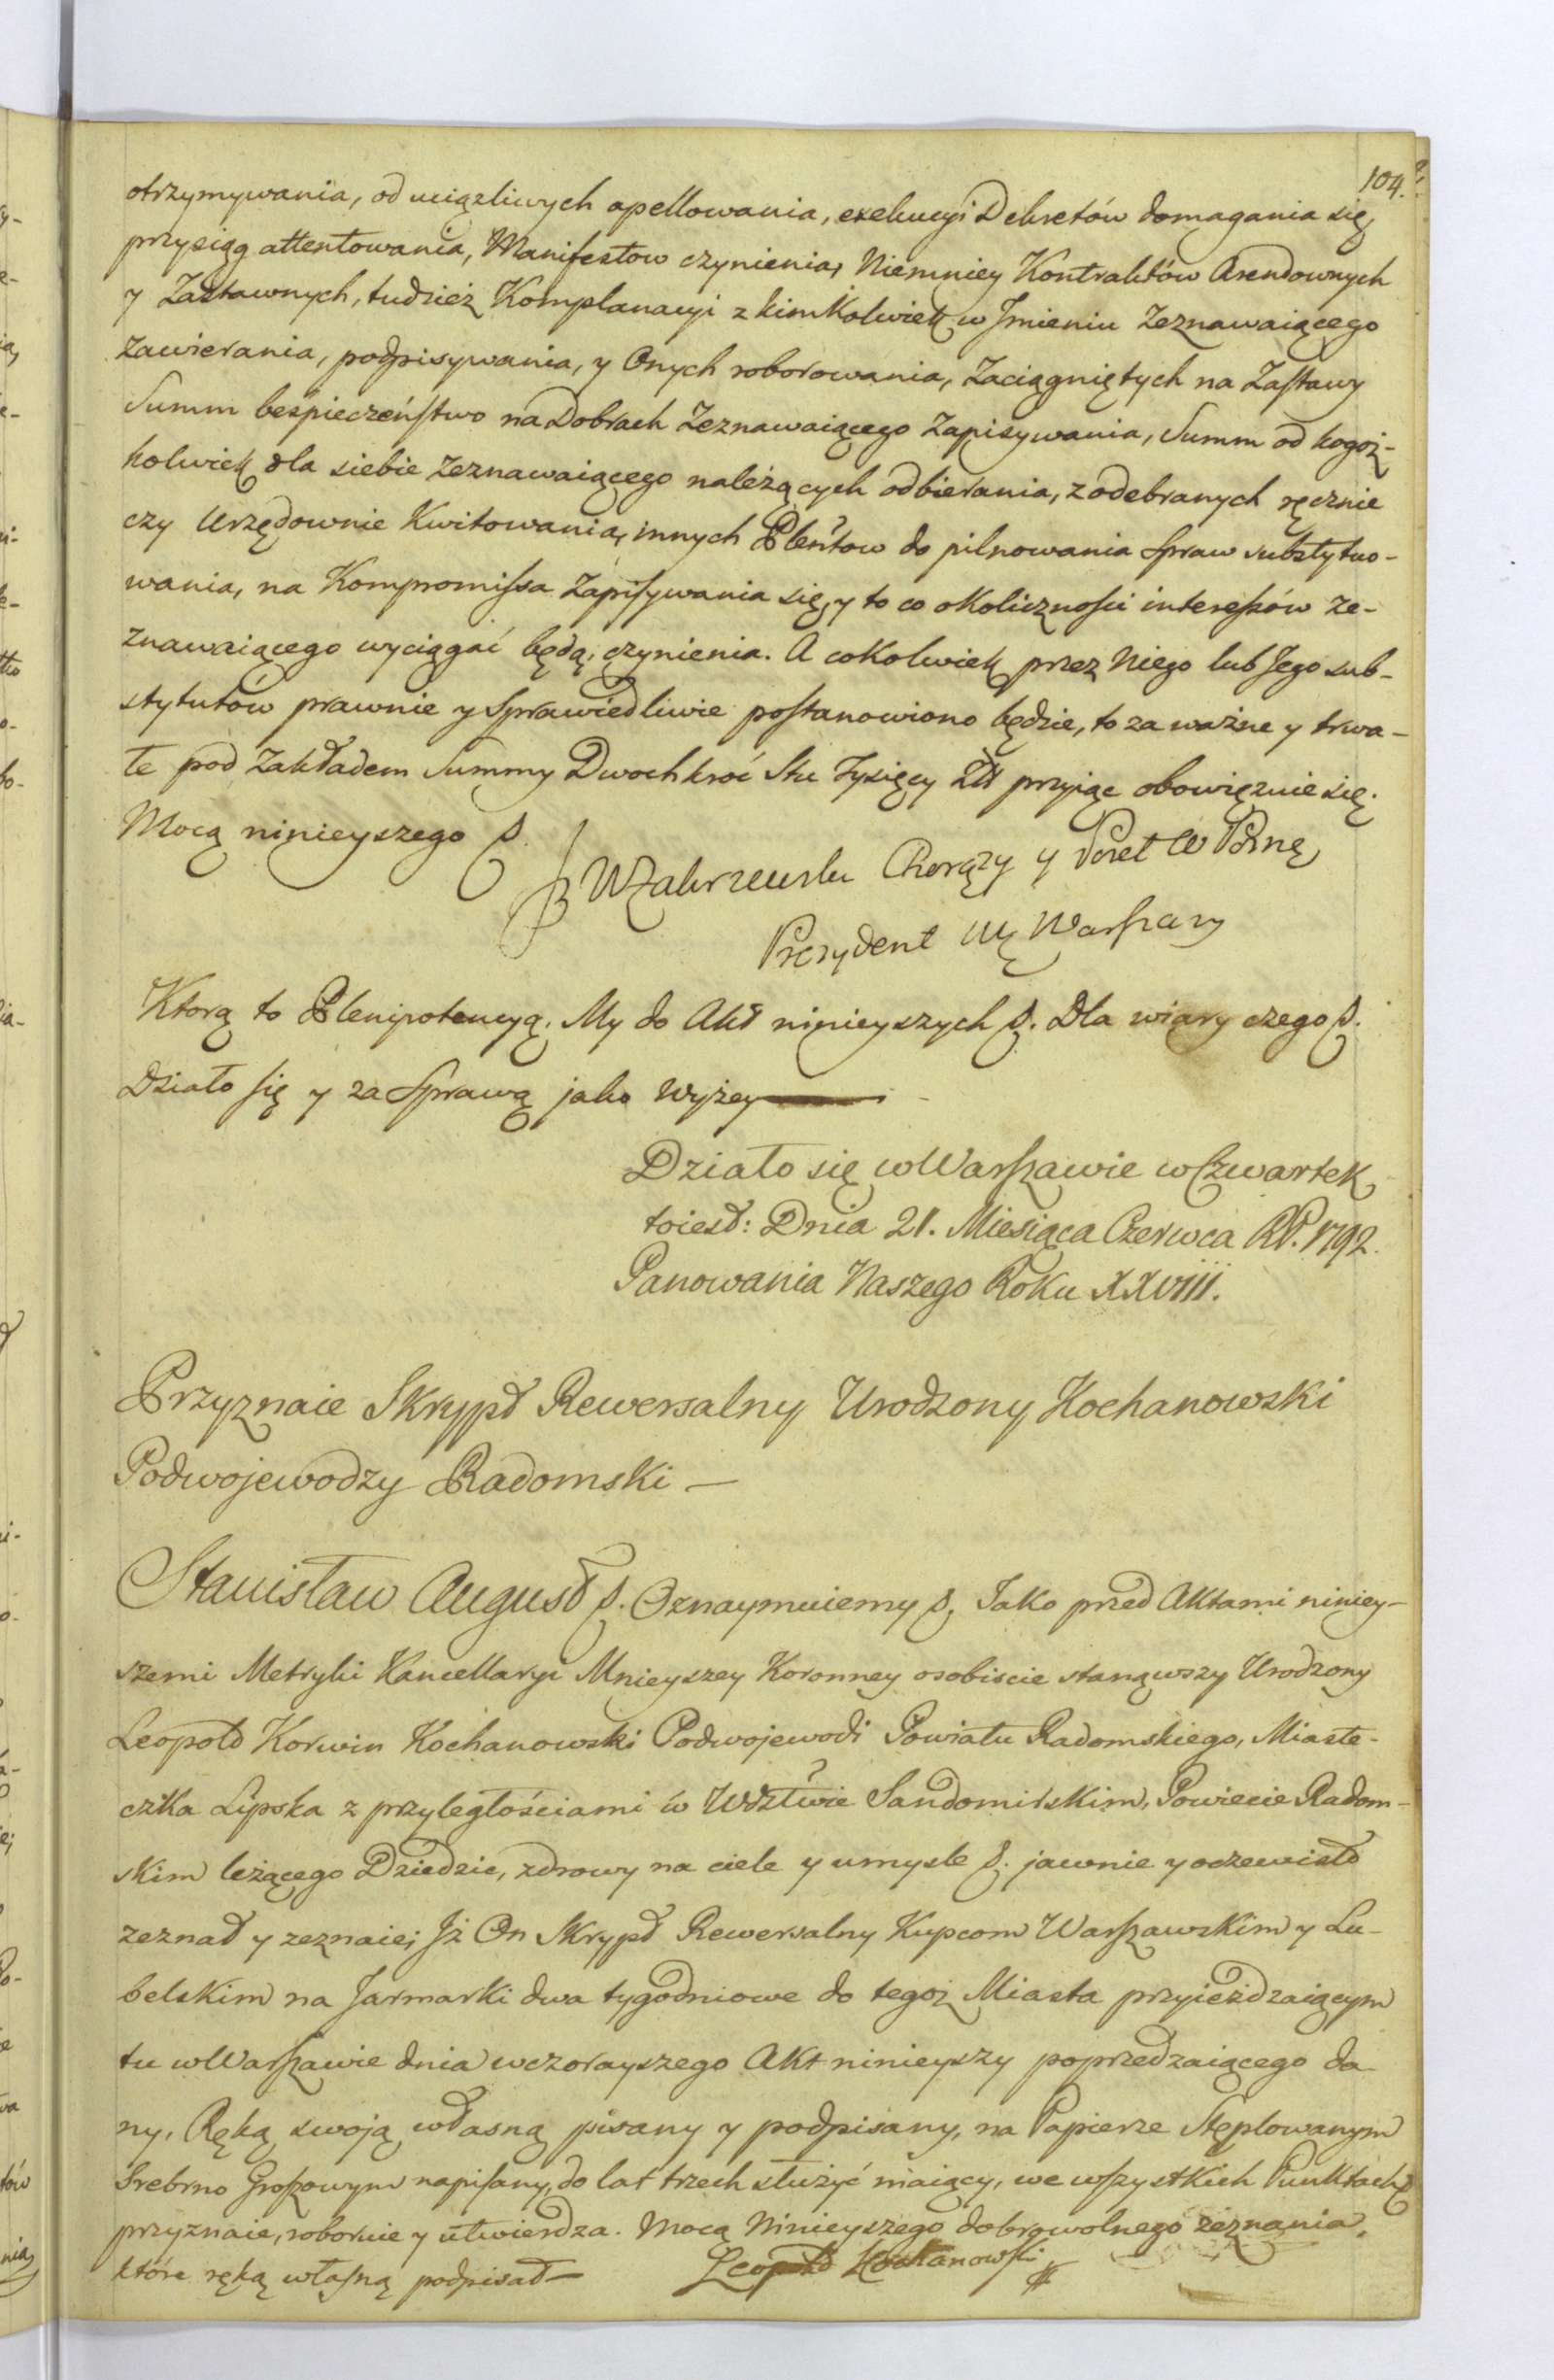 104.
otrzymywania, od uciązliwych apellowania, exekucyi Dekretów domagania się,
przysiąg attentowania, Manifestow czynienia, Niemniey Kontraktów Arendownych
y Zastawnych, tudzież Komplanacyi z kimkolwiek w Jmieniu Zeznawaiącego
Zawierania, podpisywania, y Onych roborowania, Zaciągniętych na Zastawy
Summ bespieczeństwo na Dobrach Zeznawaiącego Zapisywania, Summ od kogoż-
kolwiek dla siebie Zeznawaiącego należących odbierania, z odebranych ręcznie
czy Urzędownie Kwitowania, innych Plentow do pilnowania Spraw substytuo-
wania, na Kompromissa Zapisywania się, y to co okoliczności interessów Ze-
znawaiącego wyciągać będą, czynienia. A cokolwiek przez Niego lub Jego sub-
stytutów prawnie y Sprawiedliwie postanowiono będzie, to za ważne y trwa-
łe pod Zakładem Summy Dwochkroć Stu Tysięcy Złł przyiąc obowięzuie się.
Mocą ninieyszego
Zakrzewski Chorąży y Poseł W Pozną
Prezydent Warszawy
Ktorą to Plenipotencyą. My do Akt ninieyszych. Dla wiary czego
Działo się y za Sprawą jako wyżey
Działo się w Warszawie w Czwartek
toiest: Dnia 21. Miesiąca Czerwca RP. 1792.
Panowania Naszego Roku XXVIII.
Przyznaie Skrypt Rewersalny Urodzony Kochanowski
Podwojewodzy Radomski —
Stanisław August. Oznaymuiemy, Jako przed Aktami niniey-
szemi Metryki Kancellaryi Mnieyszey Koronney osobiscie stanąwszy Urodzony
Leopold Korwin Kochanowski Podwojewodi Powiatu Radomskiego, Miaste-
czka Lipska z przyległościami w Wdztwie Sandomirskim, Powiecie Radom-
skim leżącego Dziedzic, zdrowy na ciele y umysle. jawnie y oczewisto
zeznał y zeznaie; Jż On Skrypt Rewersalny Kupcom Warszawskim y Lu-
belskim na Jarmarki dwa tygodniowe do tegoż Miasta przyieżdzaiącym
tu w Warszawie dnia wczorayszego Akt ninieyszy poprzedzaiącego da-
ny, Ręką swoją własną pisany y podpisany, na Papierze Stęplowanym
Srebrno Groszowym napisany, do lat trzech służyć maiący, we wszystkich Punktach
przyznaie, roboruie y utwierdza. Mocą Ninieyszego dobrowolnego zeznania,
które ręką własną podpisał —
Leopold Kochanowski